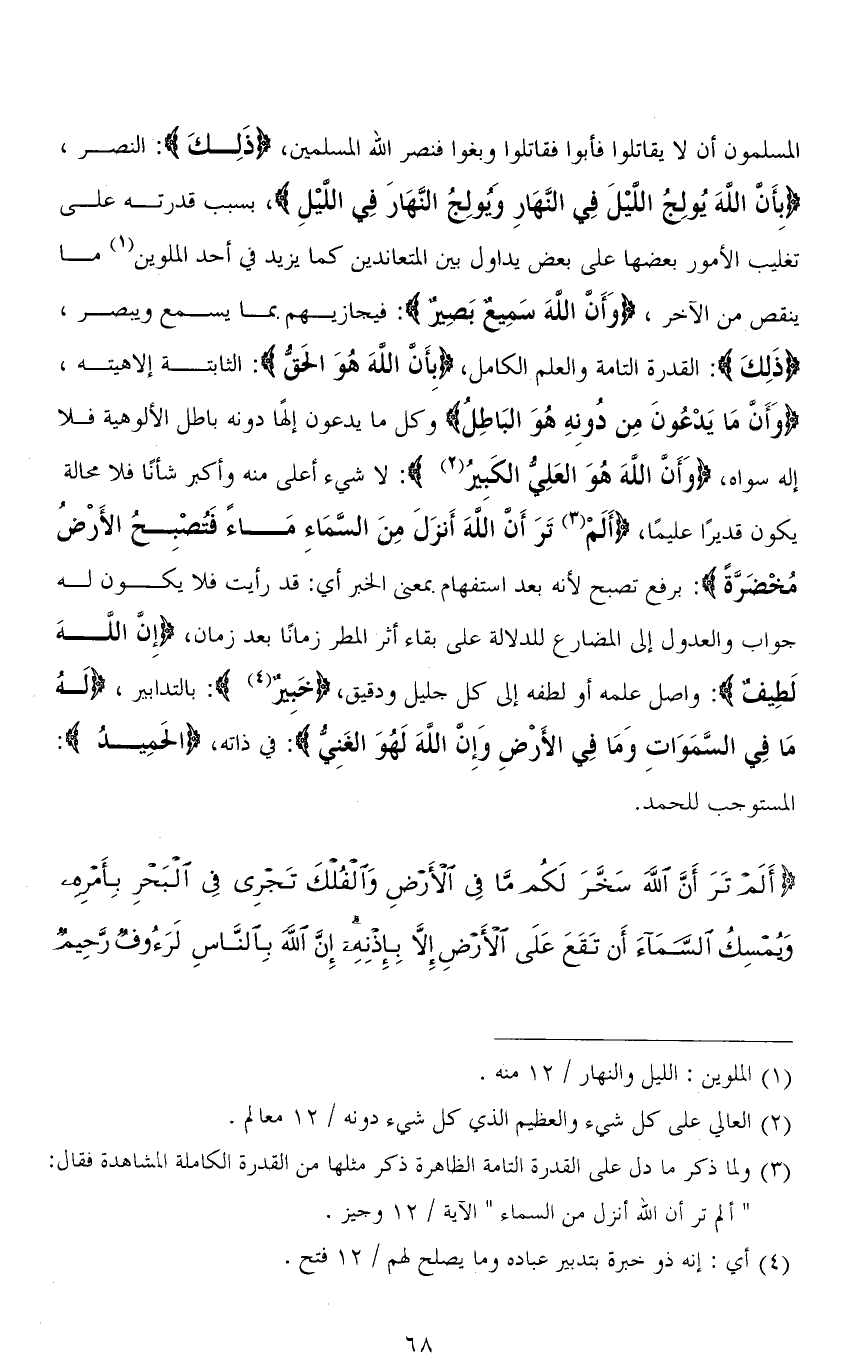 المسلمون أن لا يقاتلوا فأبوا فقاتلوا وبغوا فنصر الله المسلمين، ﴿ذَلِـــكَ ﴾: النصــر ،
﴿بِأَنَّ اللَّهَ يُولِجُ اللَّيْلَ فِي النَّهَارِ وَيُولِجُ النَّهَارَ فِي اللَّيْلِ ﴾، بسبب قدرتــه علــى
تغليب الأمور بعضها على بعض يداول بين المتعاندين كما يزيد في أحد الملوين(١) مــا
ينقص من الآخر ، ﴿وَأَنَّ اللَّهَ سَمِيعٌ بَصِيرٌ ﴾: فيجازيــهم بمــا يســمع ويبصــر ،
﴿ذَلِكَ ﴾: القدرة التامة والعلم الكامل، ﴿بِأَنَّ اللَّهَ هُوَ الحَقُّ ﴾: الثابتـــة إلاهيتــه ،
﴿وَأَنَّ مَا يَدْعُونَ مِن دُونِهِ هُوَ البَاطِلُ﴾ وكل ما يدعون إلهًا دونه باطل الألوهية فــلا
إله سواه، ﴿وَأَنَّ اللَّهَ هُوَ العَلِيُّ الكَبِيرُ(٢) ﴾: لا شيء أعلى منه وأكبر شأنًا فلا محالة
يكون قديرًا عليمًا، ﴿أَلَمْ(٣) تَرَ أَنَّ اللَّهَ أَنزَلَ مِنَ السَّمَاءِ مَــــاءً فَتُصْبِــحُ الأَرْضُ
مُخْضَرَّةً ﴾: برفع تصبح لأنه بعد استفهام بمعنى الخبر أي: قد رأيت فلا يكـــون لــه
جواب والعدول إلى المضارع للدلالة على بقاء أثر المطر زمانًا بعد زمان، ﴿إِنَّ اللَّـــهَ
لَطِيفٌ ﴾: واصل علمه أو لطفه إلى كل جليل ودقيق، ﴿خَبِيرٌ(٤) ﴾: بالتدابير ، ﴿لَــهُ
مَا فِي السَّمَوَاتِ وَمَا فِي الأَرْضِ وَإِنَّ اللَّهَ لَهُوَ الغَنِيُّ ﴾: في ذاته، ﴿الحَمِيـــدُ ﴾:
المستوجب للحمد.
﴿ أَلَمْ تَرَ أَنَّ ٱللَّهَ سَخَّرَ لَكُم مَّا فِى ٱلْأَرْضِ وَٱلْفُلْكَ تَجْرِى فِى ٱلْبَحْرِ بِأَمْرِهِۦ
وَيُمْسِكُ ٱلسَّمَآءَ أَن تَقَعَ عَلَى ٱلْأَرْضِ إِلَّا بِإِذْنِهِۦٓ ۗ إِنَّ ٱللَّهَ بِٱلنَّاسِ لَرَءُوفٌ رَّحِيمٌ
(١) الملوين : الليل والنهار / ١٢ منه .
(٢) العالي على كل شيء والعظيم الذي كل شيء دونه / ١٢ معالم .
(٣) ولما ذكر ما دل على القدرة التامة الظاهرة ذكر مثلها من القدرة الكاملة المشاهدة فقال:
" ألم تر أن الله أنزل من السماء " الآية / ١٢ وجيز .
(٤) أي : إنه ذو خبرة بتدبير عباده وما يصلح لهم / ١٢ فتح .
٦٨